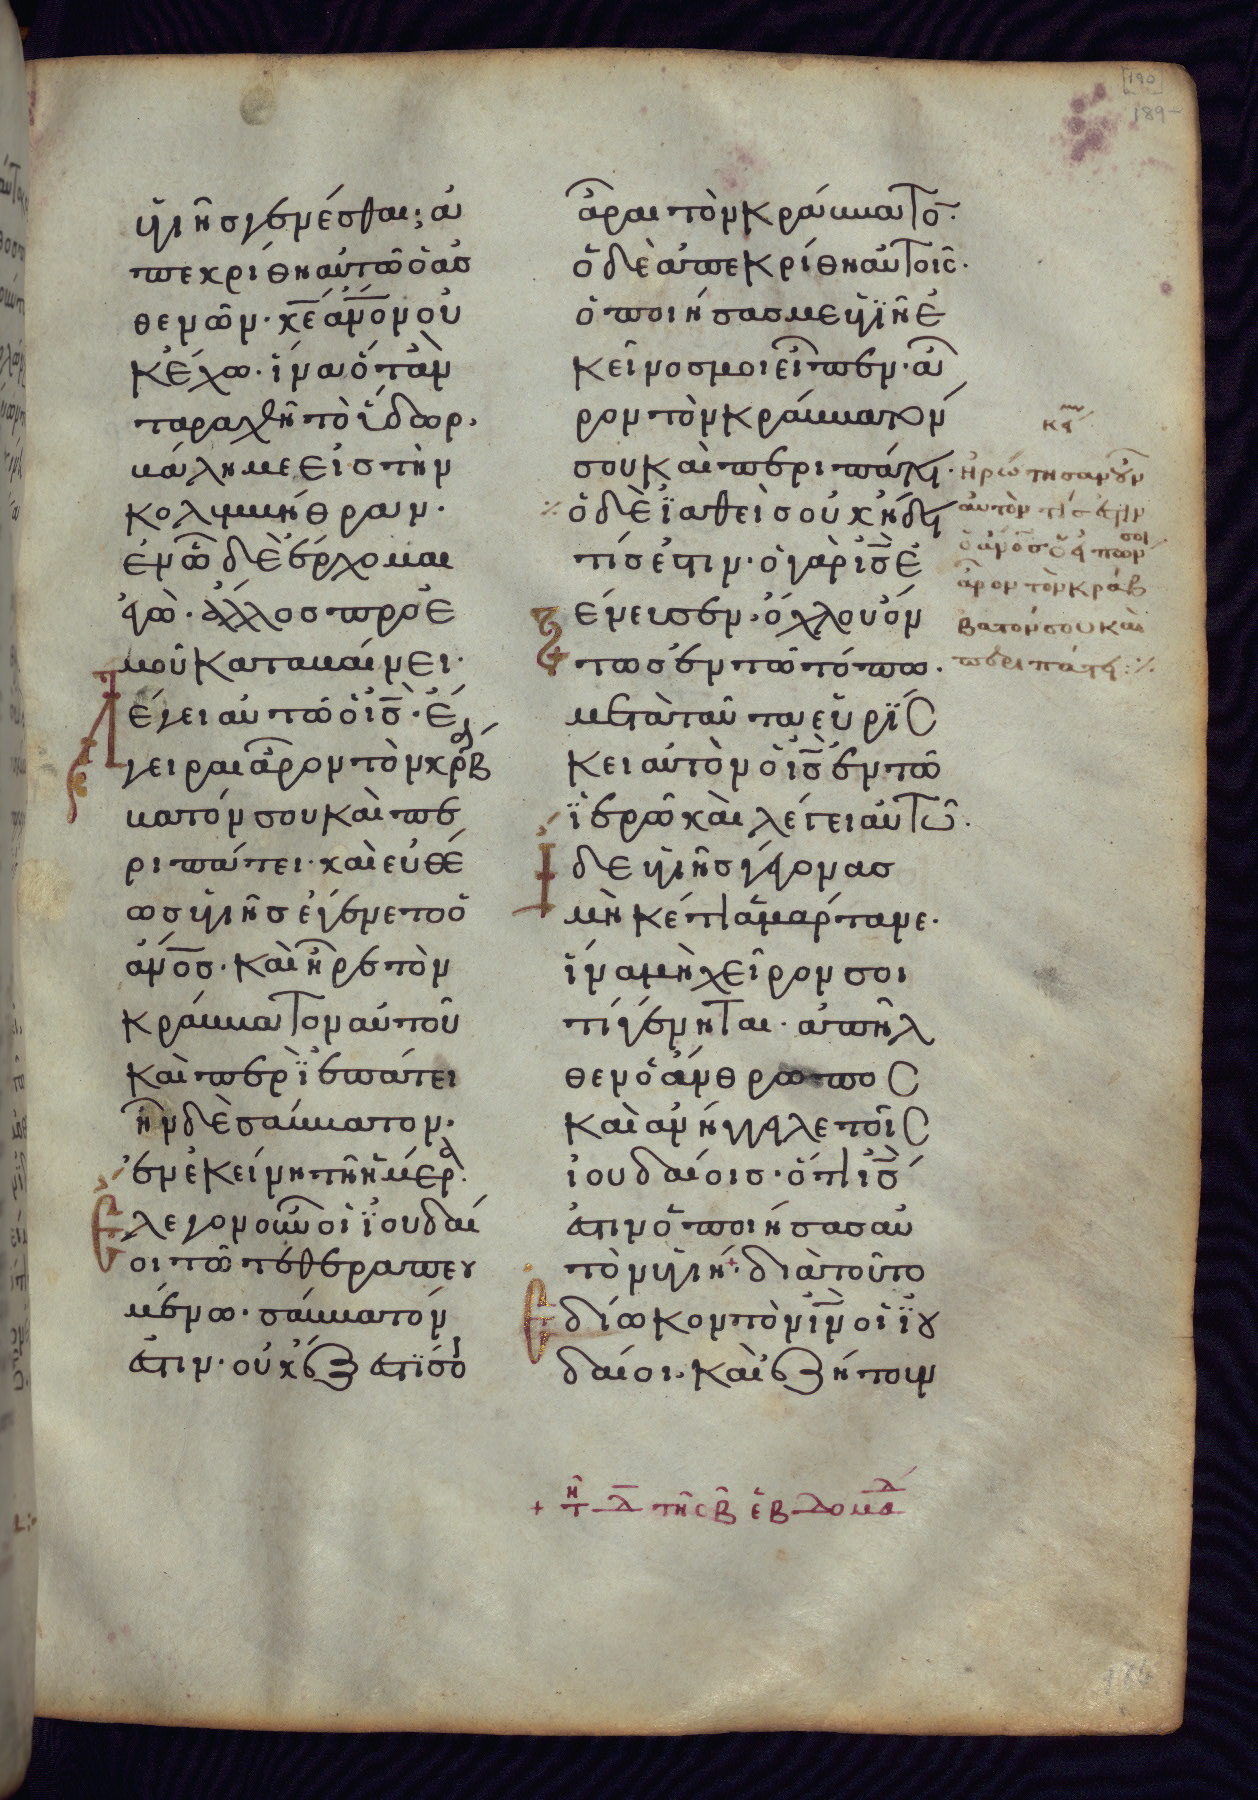 ὑγιὴς γενέσθαι; ἀ
πεκρίθη αὐτῶ ὁ ἀσ
θενῶν· κ̅ε̅ ἄν̅ο̅ν οὐ
κ ἔχω· ἵνα ὅταν
ταραχθῆ τὸ ὕδωρ·
βάλη με εἰς τὴν
κολυμβήθραν·
ἐν ὧ δὲ ἔρχομαι
ἐγὼ· ἄλλος πρὸ ἐ
μοῦ καταβαίνει·
Λέγει αὐτῶ ὁ ι̅ς̅· ἔ
γειραι ἆρον τὸν κράβ
βατόν σου καὶ πε
ριπάτει· καὶ εὐθέ
ως ὑγιὴς ἐγένετο ὁ
ἄν̅ο̅ς· καὶ ἦρε τὸν
κράββατον αὐτοῦ
καὶ περιεπάτει
ἦν δὲ σάββατον·
ἐν ἐκείνη τῆ ἡμέρα·
Ἔλεγον οὖν οἱ ἰουδαῖ
οι τῶ τεθεραπευ
μένω· σάββατόν
ἐστιν· οὐκ ἔξεστί σοι
ἆραι τὸν κράββατο̅·
ὁ δὲ ἀπεκρίθη αὐτοῖς·
ὁ ποιήσας με ὑγιῆ ἐ
κεῖνος μοι εἶπεν· ἆ
ρον τὸν κράββατόν
σου καὶ περιπάτει·
⁒ ὁ δὲ ἰαθεὶς οὐκ ἤδει
τίς ἐστιν· ὁ γὰρ ι̅ς̅ ἐ
ξένευσεν· ὄχλου ὄν
τος ἐν τῶ τόπω·
μετὰ ταῦτα εὑρίσ
κει αὐτὸν ὁ ι̅ς̅ ἐν τῶ
ἱερῶ καὶ λέγει αὐτῶ·
Ἴδε ὑγιὴς γέγονας
μηκέτι ἁμάρτανε·
ἵνα μὴ χεῖρον σοι
τί γένηται· ἀπῆλ
θεν ὁ ἄνθρωπος
καὶ ἀνήγγειλε τοῖς
ἰουδαίοις· ὅτι ι̅ς̅
ἐστιν ὁ ποιήσας αὐ
τὸν ὑγιῆ· διὰ τοῦτο
Ἐδίωκον τὸν ι̅ν̅ οἱ ἰου
δαῖοι· καὶ ἐζήτουν
ἠρώτησαν οὖν
αὐτὸν τίς ἐστιν
ὁ ἄν̅ο̅ς ὁ εἰπών σοι
ἆρον τὸν κράβ
βατόν σου καὶ
περιπάτει ⁒
+ τῆ δ̅ τῆς β̅ ἑβδομάδ
190
189